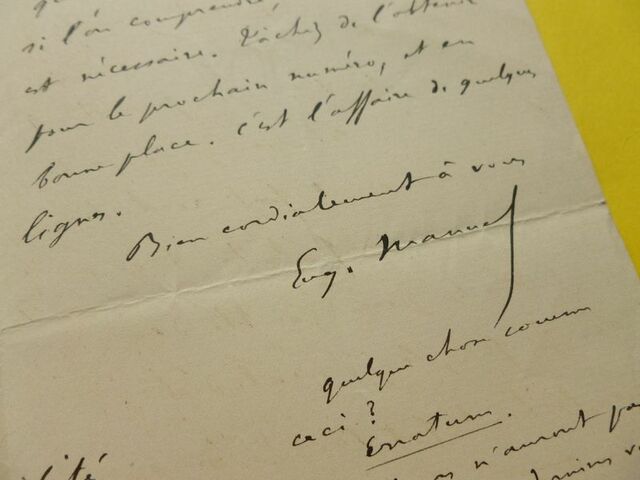 si l'on comprendre
est nécessaire. Tâchez de l'obtenir
pour le prochain numéro, et en
bonne place. C'est l'affaire de quelques
lignes.
Bien cordialement à vous
Eug. Manuel
quelque chose comme
ceci ?
Erratum.
n'auront pas